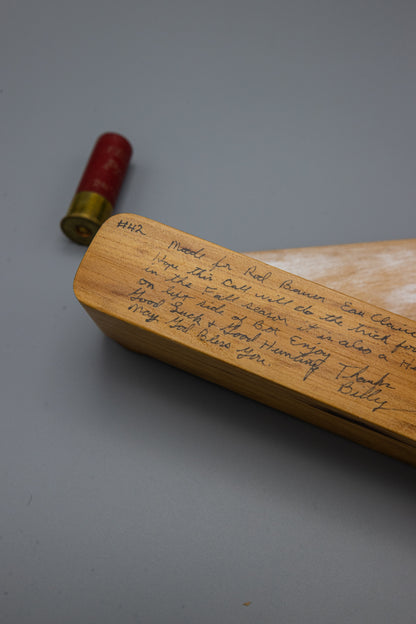 #42
Made for Rod Beaver Eau Clair
Hope this Call will do the trick for
in the Fall season it is also a
on left side of Box Enjoy
Good Luck & Good Hunting Thanks
May God Bless You. Billy